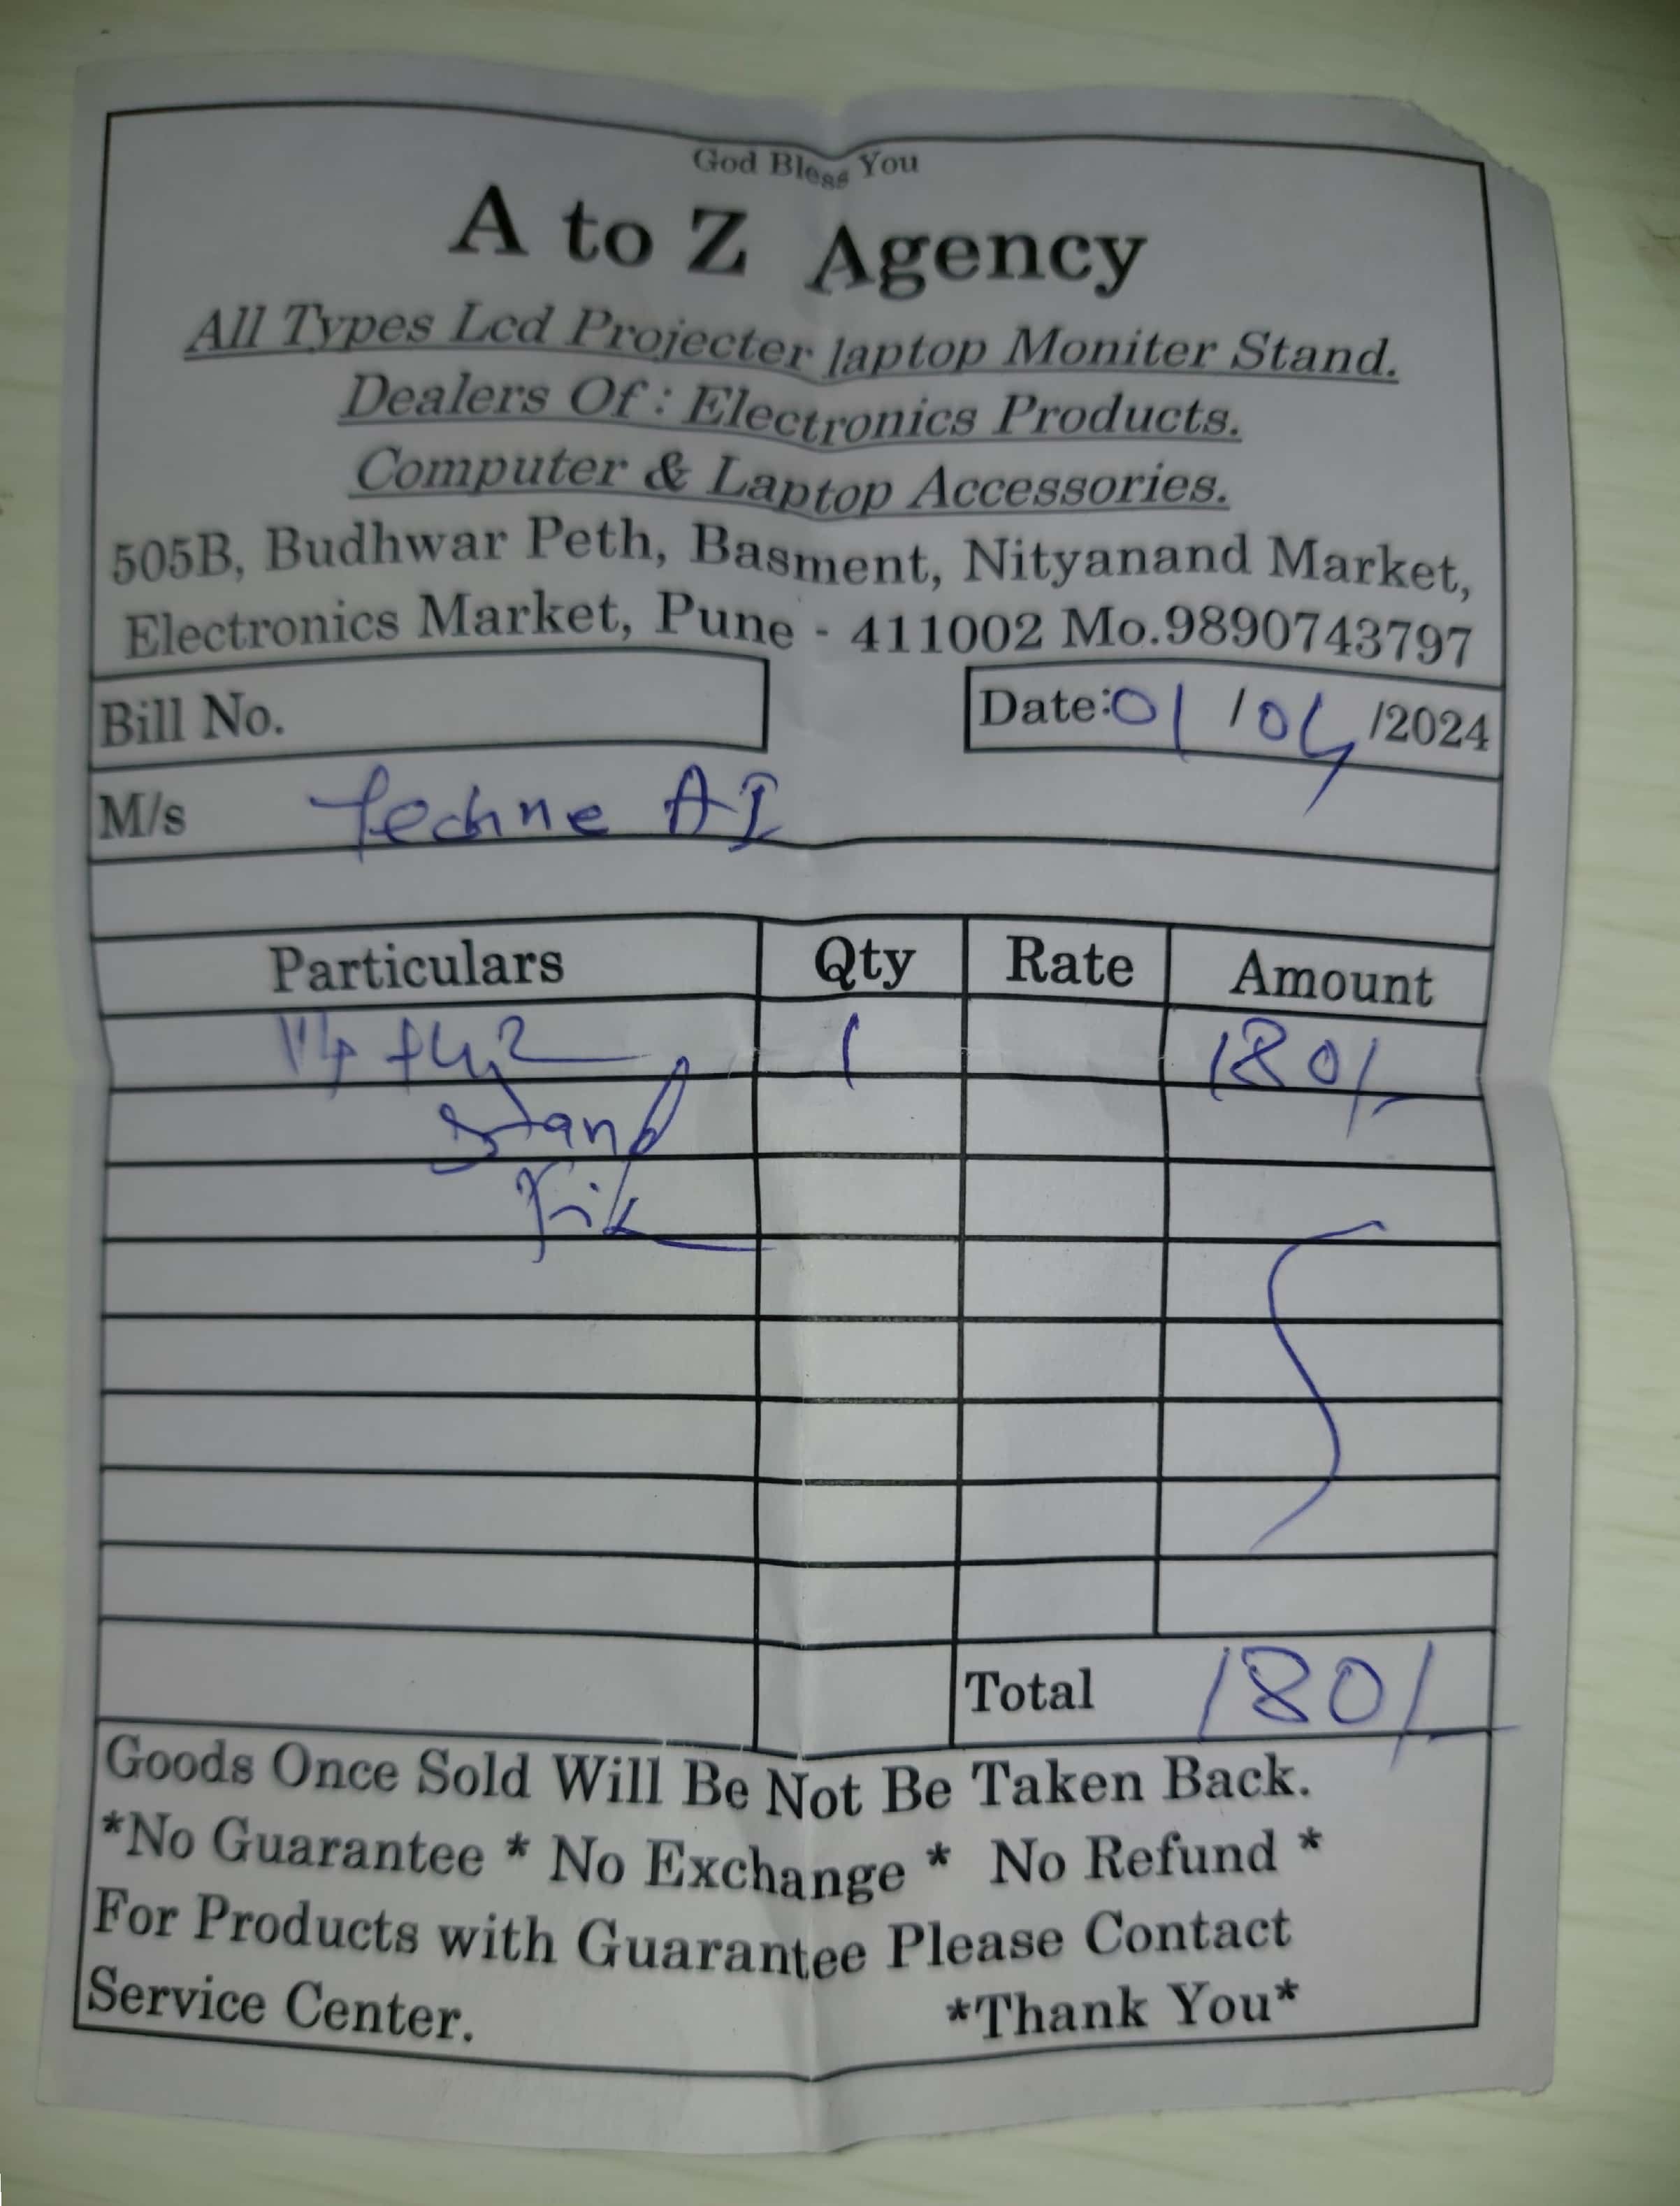 God Bless You
A to Z Agency
All Types Lcd Projecter laptop Moniter Stand.
Dealers Of : Electronics Products.
Computer & Laptop Accessories.
505B, Budhwar Peth, Basment, Nityanand Market,
Electronics Market, Pune - 411002 Mo.9890743797
Bill No. Date:01/04/2024
M/s Techne AI
Particulars Qty Rate Amount
1 180/-
Stand
Total 180/-
Goods Once Sold Will Be Not Be Taken Back.
*No Guarantee * No Exchange * No Refund *
For Products with Guarantee Please Contact
Service Center. *Thank You*